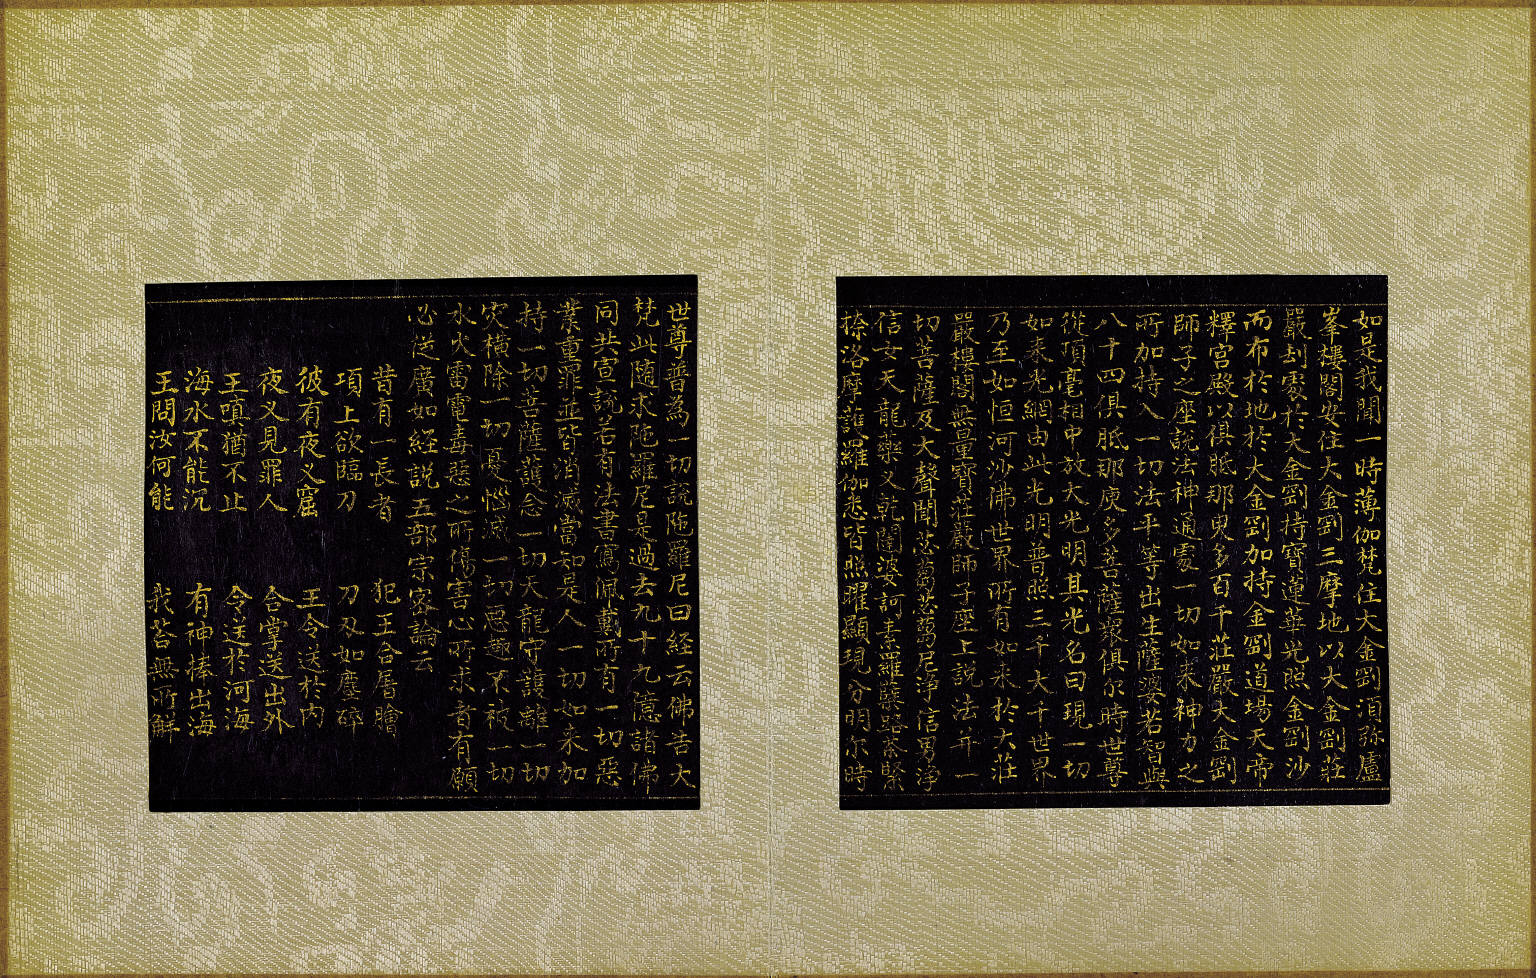 如是我聞一時薄伽梵住大金剛須弥盧
峯樓閣安住大金剛三摩地以大金剛莊
嚴刧處於大金剛持寶蓮華光照金剛沙
而布於地於大金剛加持金剛道場天帝
釋宮殿以俱胝那庾多百千莊嚴大金剛
師子之座說法神通處一切如来神力之
所加持入一切法平等出生薩婆若智與
八十四俱胝那庾多菩薩衆俱尔時世尊
從頂毫相中放大光明其光名曰現一切
如来光網由此光明普照三千大千世界
乃至如恒河沙佛世界所有如来於大莊
嚴樓閣無量寶莊嚴師子座上説法并一
切菩薩及大聲聞苾蒭苾蒭尼淨信男淨
信女天龍藥叉乾闥婆阿素羅蘖路荼緊
捺洛摩護羅伽悉皆照曜顯現分明尔時
世尊普為一切説陁羅尼曰経云佛告大
梵此随求陁羅尼是過去九十九億諸佛
同共宣説若有法書寫佩戴所有一切惡
業重罪並皆消滅當知是人一切如来加
持一切菩薩護念一切天龍守護離一切
灾橫除一切憂惱滅一切惡趣不被一切
水火雷電毒惡之所傷害心所求者有願
必從廣如経説五部宗密論云
昔有一長者 犯王合屠膾
項上欲臨刀 刀刄如塵碎
彼有夜叉窟 王令送於内
夜叉見罪人 合掌送出外
王嗔猶不止 令送於河海
海水不能沉 有神捧出海
王問汝何能 我荅無所解